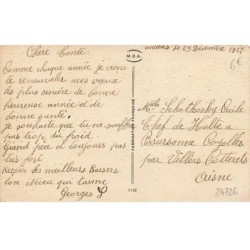 Amiens le 29 Décembre 1927
6€
Chère Tante
Comme chaque année je viens
te renouveler mes vœux
les plus sincère de bonne
heureuse année et de
bonne santé.
je souhaite que tu ne souffre
pas trop du froid
Grand père et toujours pas
Reçois les meilleurs baisers
ton neveu qui t'aime
Georges
M.D.A.
FABRICATION FRANÇAISE
Cécile
Chef de Halte a
Boursonne Coyolles
par Villers Cotterets
Aisne
24726